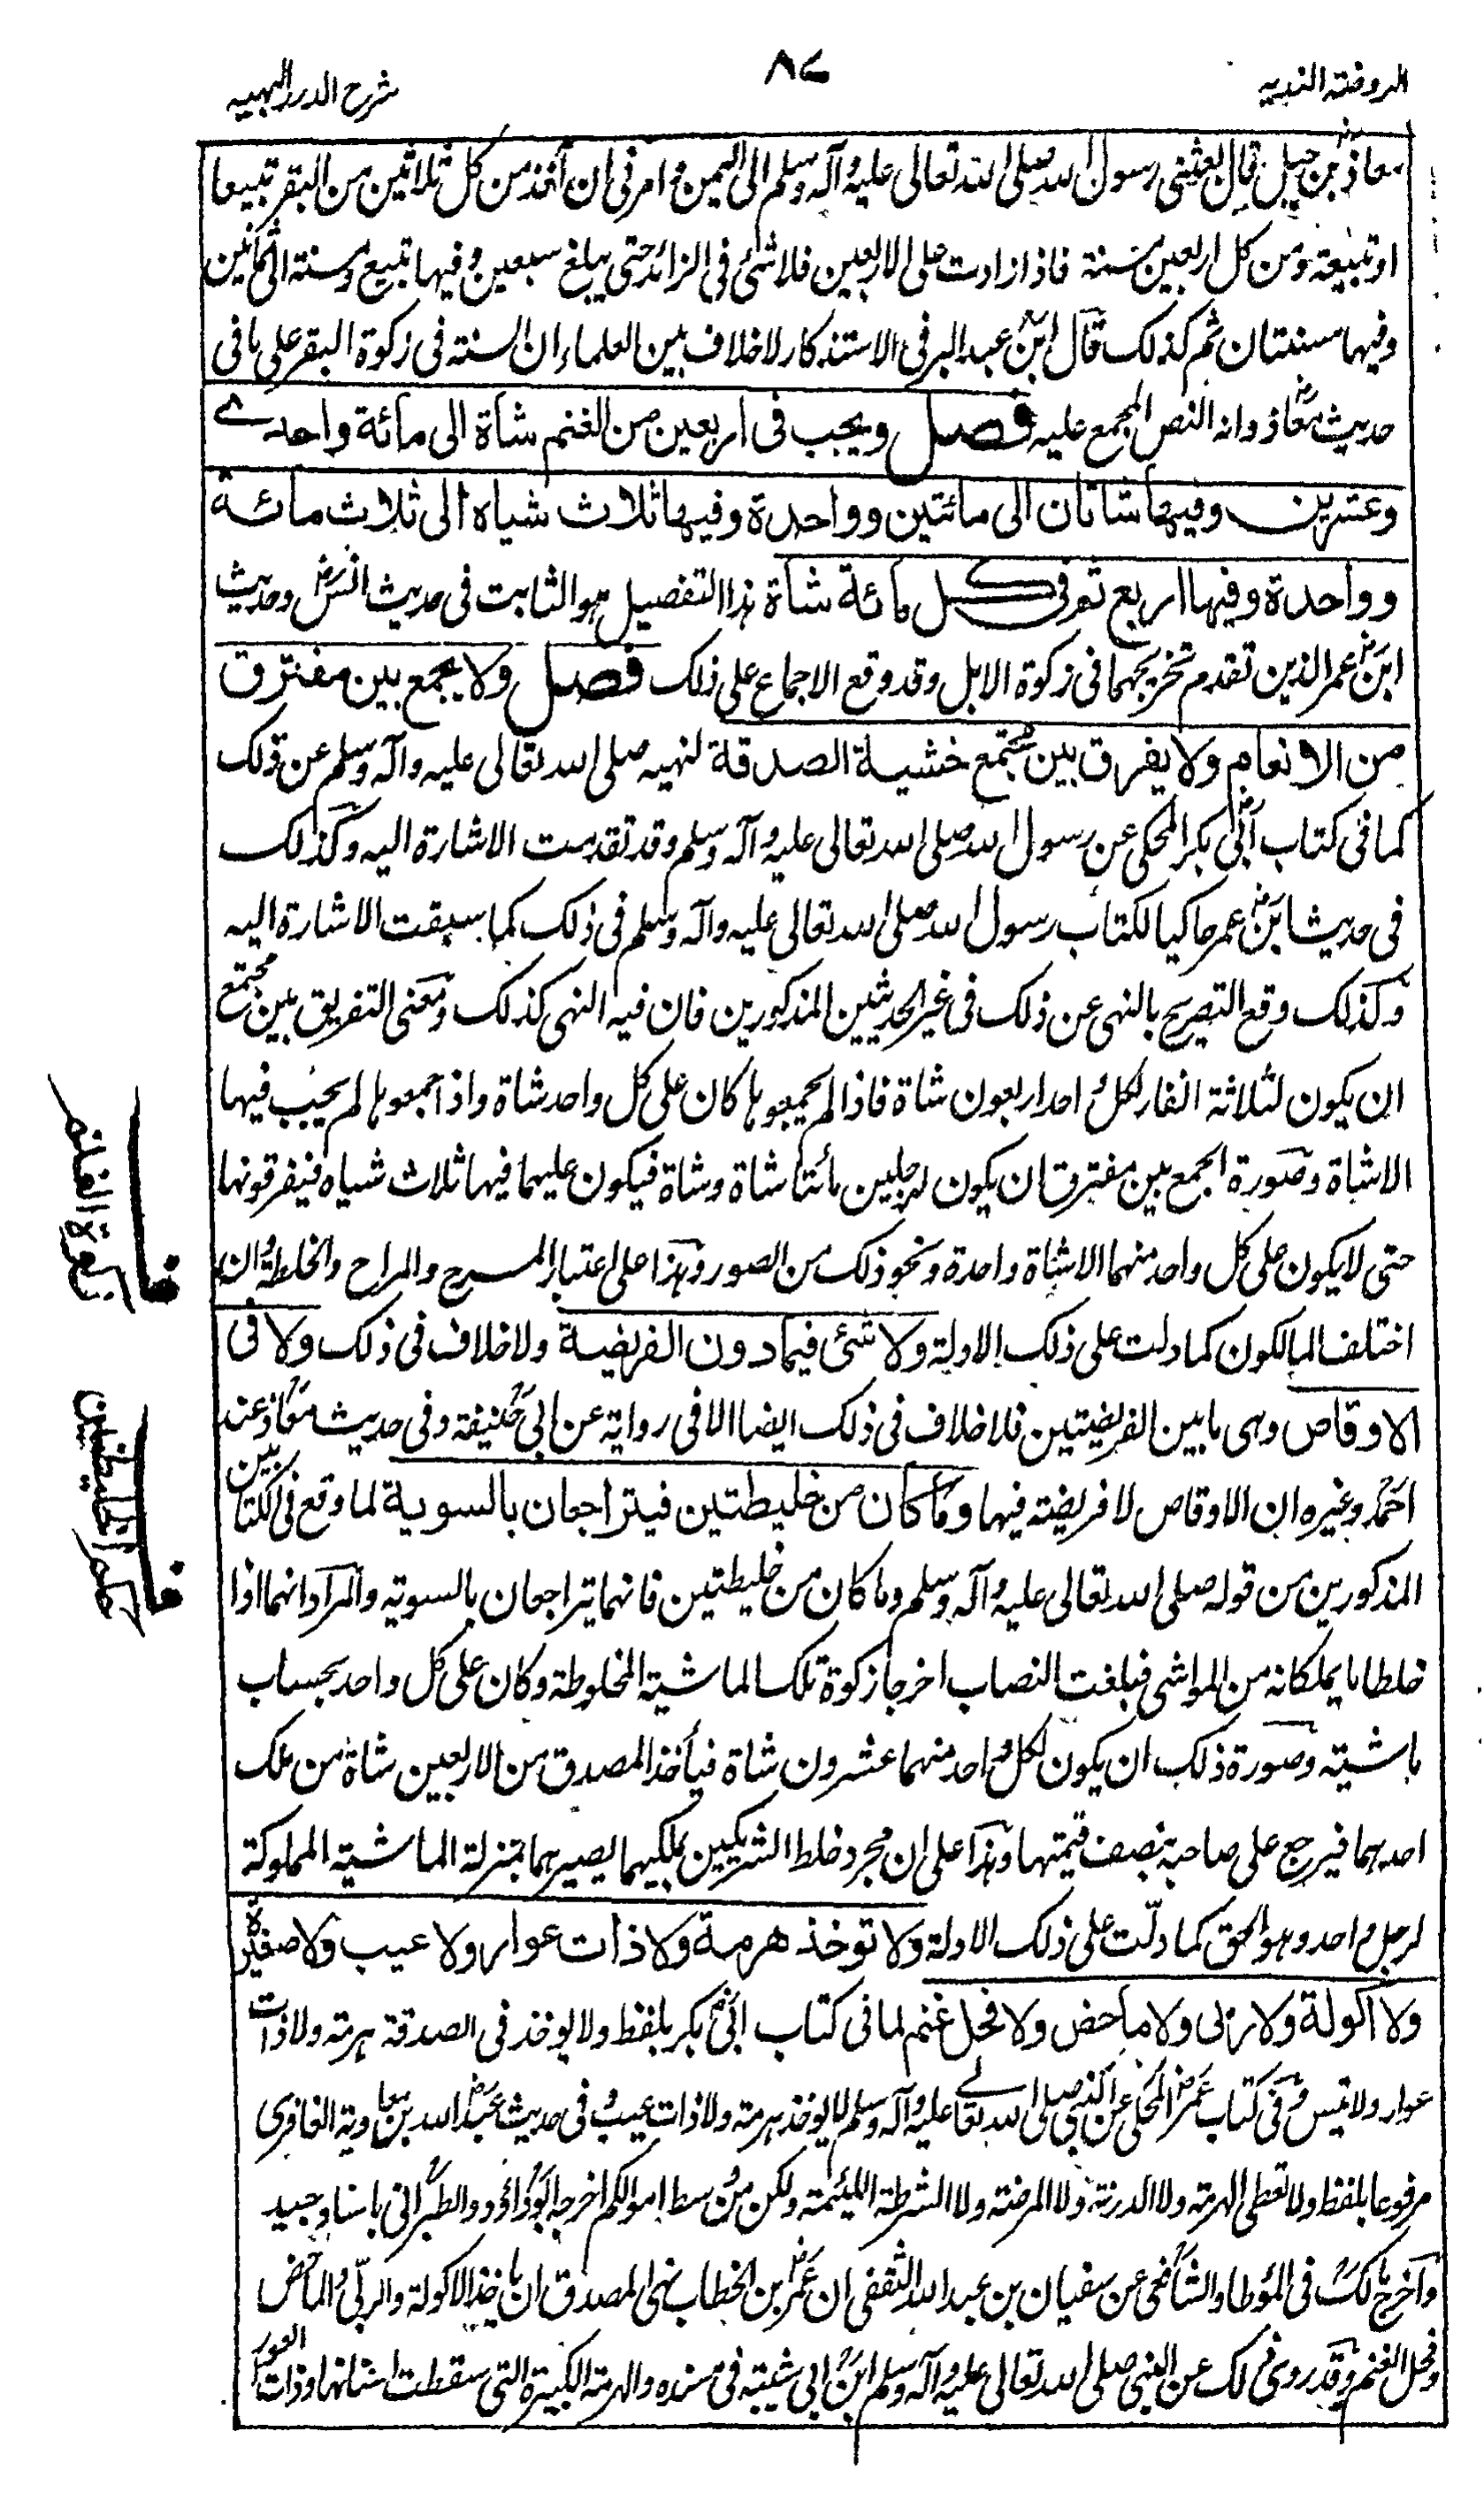 الروضة الندیه
۸۷
شرح الدرر البهیه
معاذ بن جبل قال بعثنی رسول الله صلی الله تعالی علیه وآله وسلم الی الیمن وامرنی ان آخذ من کل ثلاثین من البقر تبیعا
او تبیعة ومن کل اربعین مسنة فاذا زادت علی الاربعین فلا شئ فی الزائد حتی یبلغ سبعین وفیها تبیع ومسنة الی ثمانین
وفیها مسنتان ثم کذلک قال ابن عبد البر فی الاستذکار لا خلاف بین العلماء ان السنة فی زکوة البقر علی ما فی
حدیث معاذ وانه النص المجمع علیه فصل ویجب فی اربعین من الغنم شاة الی مائة واحدے
وعشرین وفیها شاتان الی مائتین وواحدة وفیها ثلاث شیاه الی ثلاث مائة
وواحدة وفیها اربع ثم فی کل مائة شاة هذا التفصیل هو الثابت فی حدیث انس وحدیث
ابن عمر الذین تقدم تخریجهما فی زکوة الابل وقد وقع الاجماع علی ذلک فصل ولا یجمع بین مفترق
من الانعام ولا یفرق بین مجتمع خشیة الصدقة لنهیه صلی الله تعالی علیه وآله وسلم عن ذلک
کما فی کتاب ابی بکر المحکی عن رسول الله صلی الله تعالی علیه وآله وسلم وقد تقدمت الاشارة الیه وکذلک
فی حدیث ابن عمر حاکیا لکتاب رسول الله صلی الله تعالی علیه وآله وسلم فی ذلک کما سبقت الاشارة الیه
وکذلک وقع التصریح بالنهی عن ذلک فی غیر الحدیثین المذکورین فان فیه النهی کذلک ومعنی التفریق بین مجتمع
ان یکون لثلاثة انفار لکل واحد اربعون شاة فاذا لم یجمعوها کان علی کل واحد شاة واذا جمعوها لم یجب فیها
الا شاة وصورة الجمع بین مفترق ان یکون لرجلین مائتا شاة وشاة فیکون علیهما فیها ثلاث شیاه فیفرقونها
حتی لا یکون علی کل واحد منهما الا شاة واحدة ونحو ذلک من الصور وهذا علی اعتبار المسرح والمراح والخلطة وان
اختلف المالکون کما دلت علی ذلک الادلة ولا شئ فیما دون الفریضة ولا خلاف فی ذلک ولا فی
الاوقاص وهی ما بین الفریضتین فلا خلاف فی ذلک ایضا الا فی روایة عن ابی حنیفة وفی حدیث معاذ عند
احمد وغیره ان الاوقاص لا فریضة فیها وما کان من خلیطتین فیتراجعان بالسویة لما وقع فی الکتابین
المذکورین من قوله صلی الله تعالی علیه وآله وسلم وما کان من خلیطتین فانهما یتراجعان بالسویة والمراد انهما اذا
خلطا ما یملکانه من المواشی فبلغت النصاب اخرجا زکوة تلک الماشیة المخلوطة وکان علی کل واحد بحساب
ماشیته وصورة ذلک ان یکون لکل واحد منهما عشرون شاة فیأخذ المصدق من الاربعین شاة من ملک
احدهما فیرجع علی صاحبه بنصف قیمتها وهذا علی ان مجرد خلط الشریکین لملکیهما یصیرهما بمنزلة الماشیة المملوکة
لرجل واحد وهو الحق کما دلّت علی ذلک الادلة ولا توخذ هرمة ولا ذات عوار ولا عیب ولا صغیرة
ولا اکولة ولا ربی ولا ماخض ولا فحل غنم لما فی کتاب ابی بکر بلفظ ولا یوخذ فی الصدقة هرمة ولا ذات
عوار ولا تیس وفی کتاب عمر المحکی عن النبی صلی الله تعالے علیه وآله وسلم لا یوخذ هرمة ولا ذات عیب وفی حدیث عبد الله بن معاویة الغافری
مرفوعا بلفظ ولا تعطی الهرمة ولا الدرنة ولا المریضة ولا الشرطة اللئیمة ولکن من وسط اموالکم اخرجه ابو داؤد والطبرانی باسناد جید
واخرج مالک فی المؤطا والشافعی عن سفیان بن عبد الله الثقفی ان عمر بن الخطاب نهی المصدق ان یاخذ الاکولة والربّی والماخض
وفحل الغنم وقد روی ذلک عن النبی صلی الله تعالی علیه وآله وسلم ابن ابی شیبة فی مسنده والهرمة الکبیرة التی سقطت اسنانها وذات العور
ف زکوة الغنم
ف حکم الخلیطین